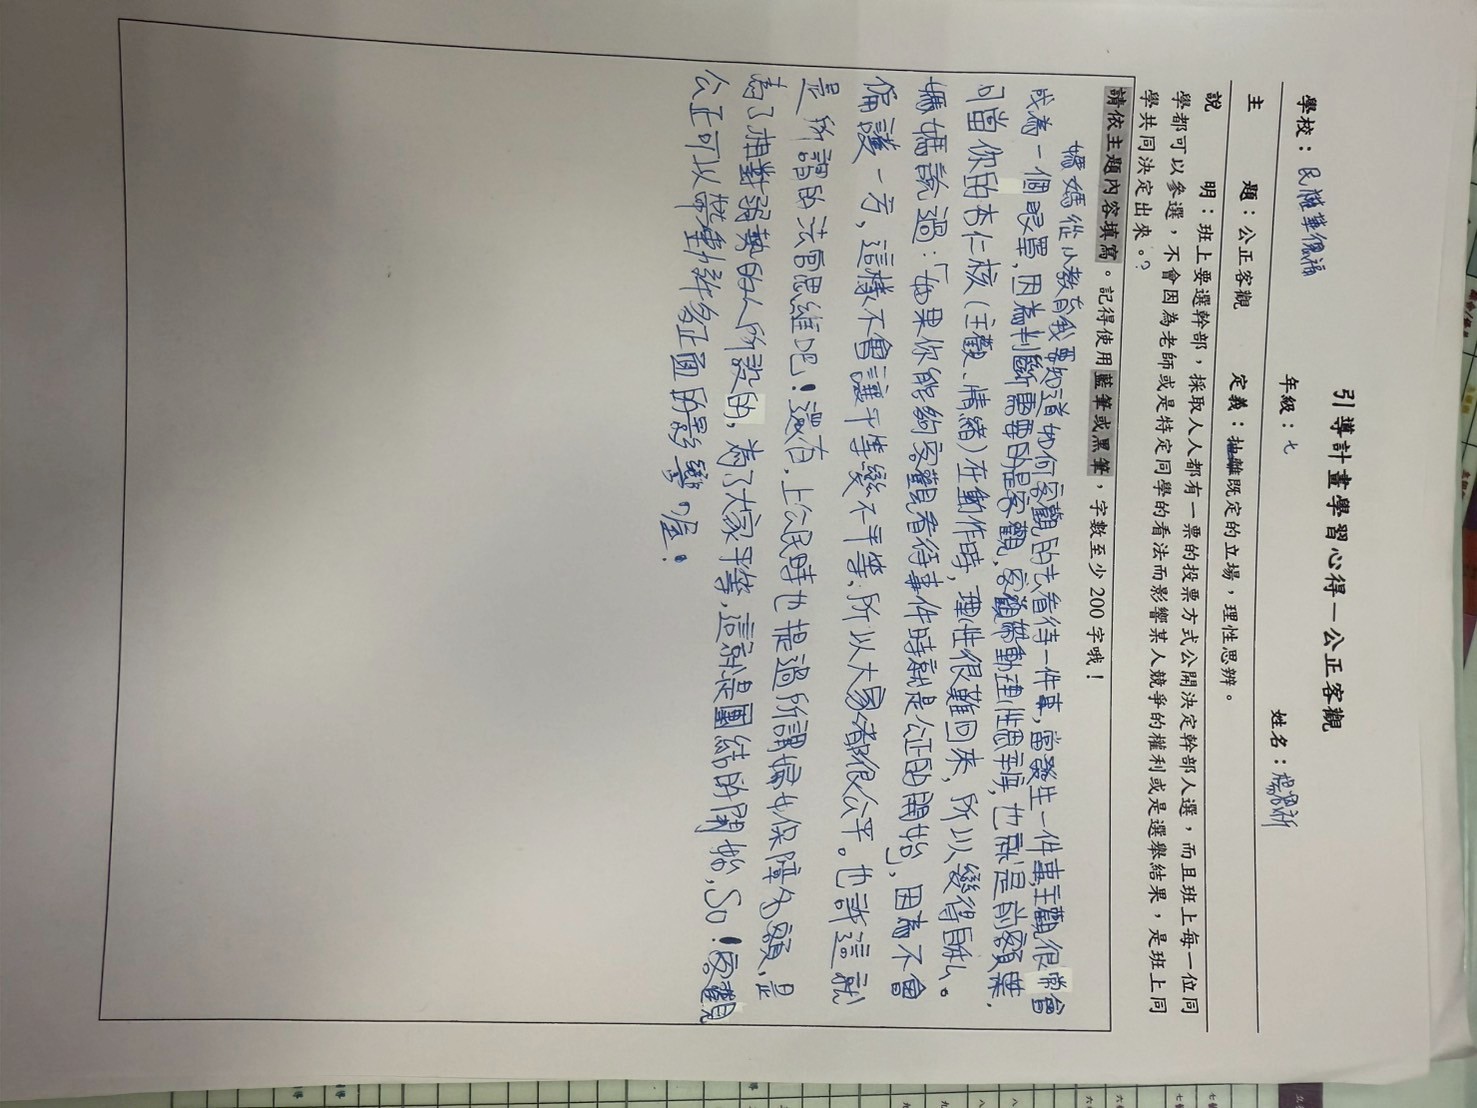 引導計畫學習心得—公正客觀
學校：民權華德福 年級：七 姓名：
主 題：公正客觀 定義：抽離既定的立場，理性思辨。
說 明：班上要選幹部，採取人人都有一票的投票方式公開決定幹部人選，而且班上每一位同
學都可以參選，不會因為老師或是特定同學的看法而影響某人競爭的權利或是選舉結果，是班上同
學共同決定出來。?
請依主題內容填寫。記得使用藍筆或黑筆，字數至少 200 字哦！
媽媽從小教育我要知道如何客觀的去看待一件事，當發生一件事,主觀很常會
成為一個眼罩，因為判斷需要的是客觀，客觀帶動理性思辨，也就是前額葉，
可當你的杏仁核(主觀、情緒)在動作時，理性很難回來，所以變得自私。
媽媽說過：「如果你能夠客觀看待事件時就是公正的開始」，因為不會
偏護一方，這樣不會讓平等變不平等，所以大家都很公平。也許這就
是所謂的法官思維吧！還有，上公民時也提過所謂婦女保障名額，是
為了相對弱勢的人所設的，為了大家平等，這就是團結的開始，So！客觀
公正可以帶動許多正面的影響喔！